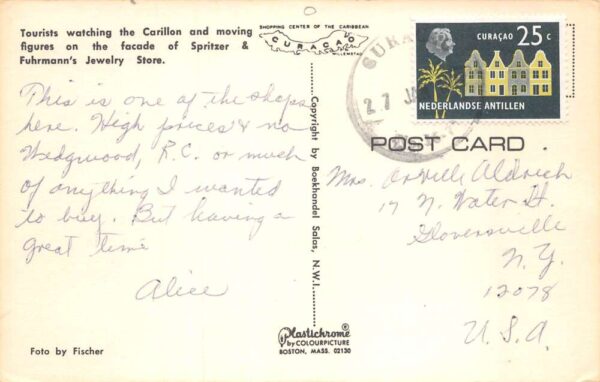 Tourists watching the Carillon and moving
figures on the facade of Spritzer &
Fuhrmann's Jewelry Store.
SHOPPING CENTER OF THE CARIBBEAN
CURACAO
WILLEMSTAD
This is one of the shops
here. High prices & no
Wedgwood, R.C. or much
of anything I wanted
to buy. But having a
great time
Alice
Foto by Fischer
Copyright by Boekhandel Salas, N.W.I.
Plastichrome®
by COLOURPICTURE
BOSTON, MASS. 02130
CURA
27 JA
CURAÇAO 25 c
NEDERLANDSE ANTILLEN
POST CARD
Mrs. Orville Aldrich
17 N. Water St.
Gloversville
N.Y.
12078
U.S.A